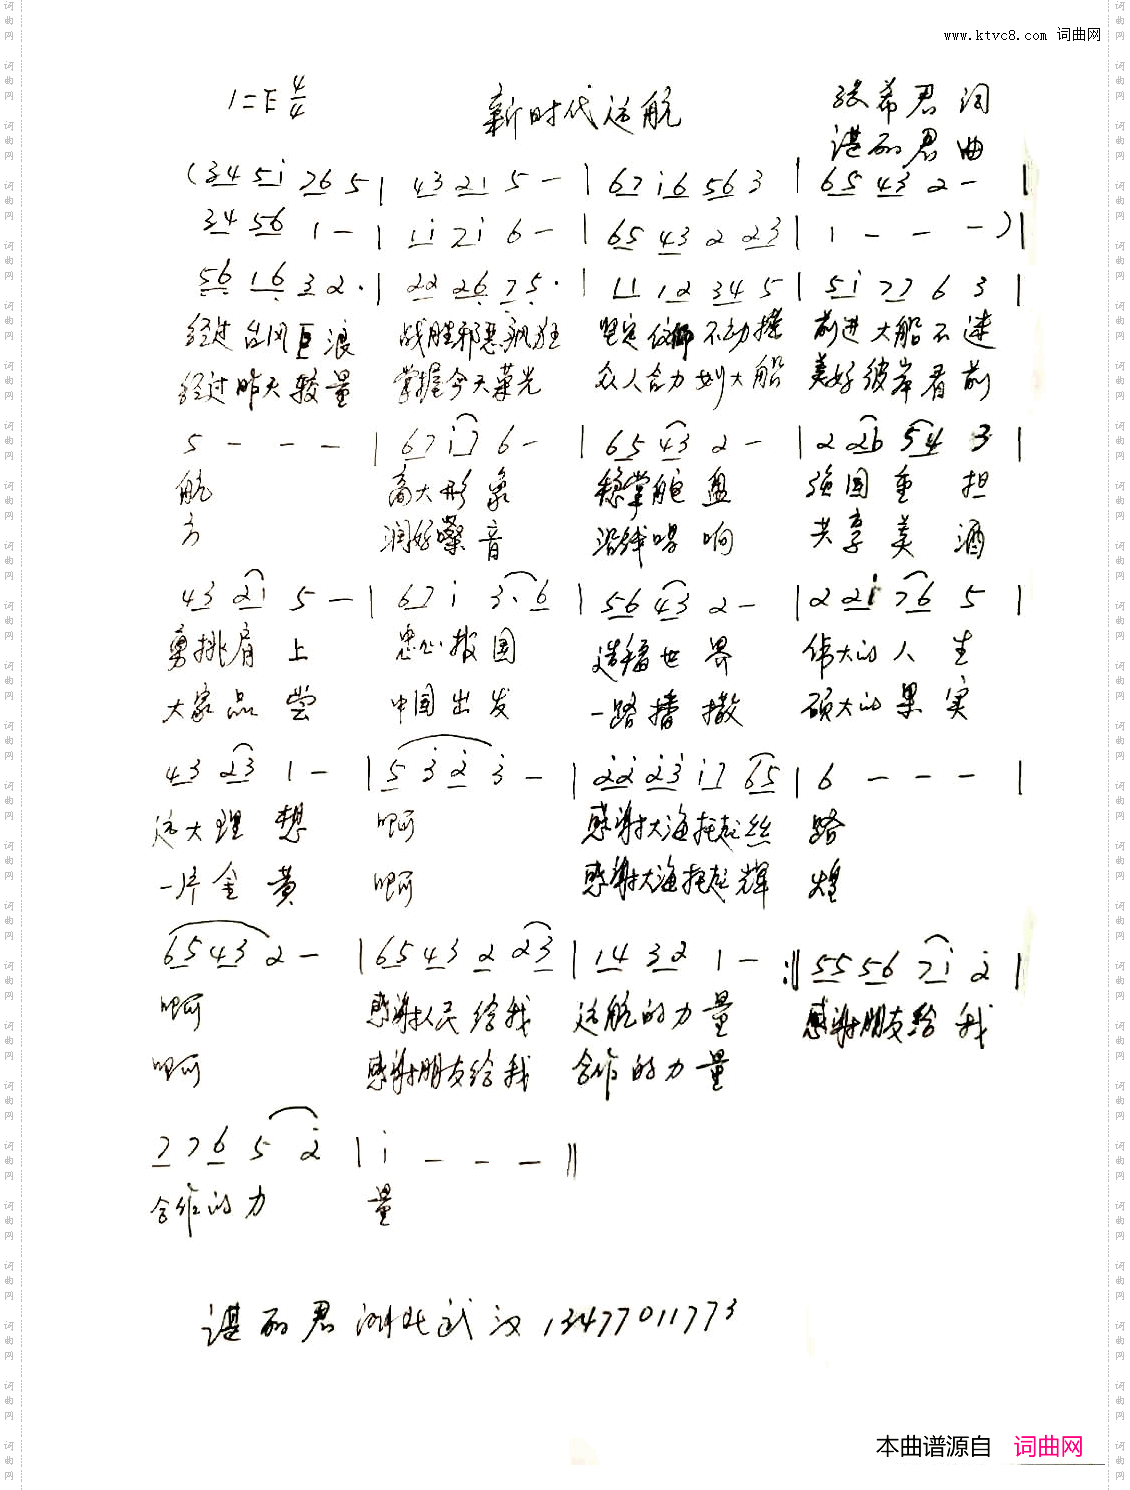 www.ktvc8.com 词曲网
1=E 4/4
新时代远航
张希君 词
谌丽君 曲
(3 4 5 i 7 6 5 | 4 3 2 1 5 - | 6 7 i 6 5 6 3 | 6 5 4 3 2 - |
3 4 5 6 1 - | 1 i 7 i 6 - | 6 5 4 3 2 2 3 | 1 - - - ) |
5 6 1 6 3 2 . | 2 2 2 6 7 5 . | 1 1 1 2 3 4 5 | 5 i 7 7 6 3 |
经过台风巨浪 战胜邪恶疯狂 坚定信仰不动摇 前进大船不迷
经过昨天较量 掌握今天荣光 众人合力划大船 美好彼岸看前
5 - - - | 6 7 i 7 6 - | 6 5 4 3 2 - | 2 2 6 5 4 3 |
航 高大形象 稳掌舵盘 强国重担
方 润好嗓音 沿线唱响 共享美酒
4 3 2 1 5 - | 6 7 i 3 . 6 | 5 6 4 3 2 - | 2 2 i 7 6 5 |
勇挑肩上 忠心报国 造福世界 伟大的人生
大家品尝 中国出发 一路播撒 硕大的果实
4 3 2 3 1 - | 5 3 2 3 - | 2 2 2 3 i 7 6 5 | 6 - - - |
远大理想 啊 感谢大海托起丝路
一片金黄 啊 感谢大海托起辉煌
6 5 4 3 2 - | 6 5 4 3 2 2 3 | 1 4 3 2 1 - :|| 5 5 5 6 7 i 2 |
啊 感谢人民给我 远航的力量 感谢朋友给我
啊 感谢朋友给我 合作的力量
7 7 6 5 2 | i - - - ||
合作的力 量
谌丽君 湖北武汉 13477011773
本曲谱源自 词曲网